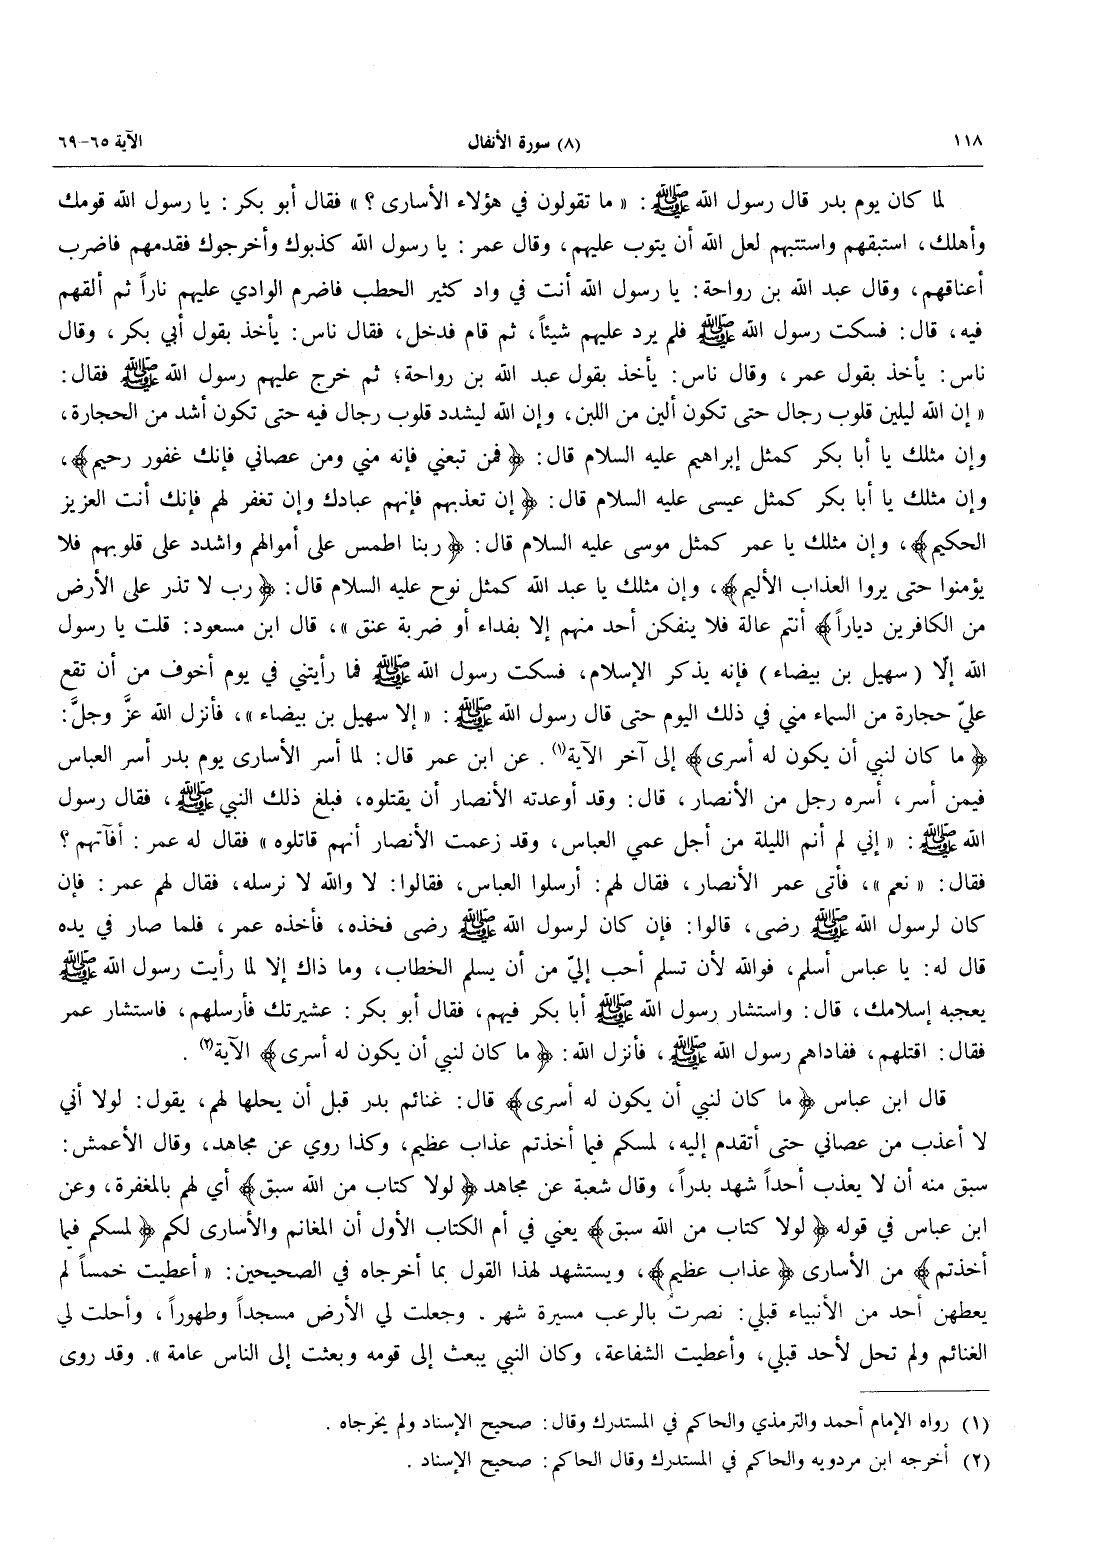 ١١٨ (٨) سورة الأنفال الآية ٦٥-٦٩
لما كان يوم بدر قال رسول الله ﷺ : « ما تقولون في هؤلاء الأسارى ؟ » فقال أبو بكر : يا رسول الله قومك
وأهلك، استبقهم واستتبهم لعل الله أن يتوب عليهم، وقال عمر : يا رسول الله كذبوك وأخرجوك فقدمهم فاضرب
أعناقهم، وقال عبد الله بن رواحة: يا رسول الله أنت في واد كثير الحطب فاضرم الوادي عليهم ناراً ثم ألقهم
فيه، قال: فسكت رسول الله ﷺ فلم يرد عليهم شيئاً، ثم قام فدخل، فقال ناس: يأخذ بقول أبي بكر ، وقال
ناس: يأخذ بقول عمر ، وقال ناس: يأخذ بقول عبد الله بن رواحة؛ ثم خرج عليهم رسول الله ﷺ فقال:
« إن الله ليلين قلوب رجال حتى تكون ألين من اللبن، وإن الله ليشدد قلوب رجال فيه حتى تكون أشد من الحجارة،
وإن مثلك يا أبا بكر كمثل إبراهيم عليه السلام قال: ﴿ فمن تبعني فإنه مني ومن عصاني فإنك غفور رحيم﴾،
وإن مثلك يا أبا بكر كمثل عيسى عليه السلام قال: ﴿ إن تعذبهم فإنهم عبادك وإن تغفر لهم فإنك أنت العزيز
الحكيم﴾، وإن مثلك يا عمر كمثل موسى عليه السلام قال: ﴿ ربنا اطمس على أموالهم واشدد على قلوبهم فلا
يؤمنوا حتى يروا العذاب الأليم﴾، وإن مثلك يا عبد الله كمثل نوح عليه السلام قال: ﴿رب لا تذر على الأرض
من الكافرين دياراً﴾ أنتم عالة فلا ينفكن أحد منهم إلا بفداء أو ضربة عنق »، قال ابن مسعود: قلت يا رسول
الله إلّا ( سهيل بن بيضاء ) فإنه يذكر الإسلام، فسكت رسول الله ﷺ فما رأيتني في يوم أخوف من أن تقع
عليّ حجارة من السماء مني في ذلك اليوم حتى قال رسول الله ﷺ : « إلا سهيل بن بيضاء »، فأنزل الله عزَّ وجلَّ:
﴿ ما كان لنبي أن يكون له أسرى﴾ إلى آخر الآية(١) . عن ابن عمر قال: لما أسر الأسارى يوم بدر أسر العباس
فيمن أسر ، أسره رجل من الأنصار ، قال: وقد أوعدته الأنصار أن يقتلوه، فبلغ ذلك النبي ﷺ ، فقال رسول
الله ﷺ : « إني لم أنم الليلة من أجل عمي العباس، وقد زعمت الأنصار أنهم قاتلوه » فقال له عمر : أفآتهم ؟
فقال: « نعم »، فأتى عمر الأنصار ، فقال لهم: أرسلوا العباس، فقالوا: لا والله لا نرسله، فقال لهم عمر : فإن
كان لرسول الله ﷺ رضى، قالوا: فإن كان لرسول الله ﷺ رضى فخذه، فأخذه عمر ، فلما صار في يده
قال له: يا عباس أسلم، فوالله لأن تسلم أحب إليّ من أن يسلم الخطاب، وما ذاك إلا لما رأيت رسول الله ﷺ
يعجبه إسلامك، قال: واستشار رسول الله ﷺ أبا بكر فيهم، فقال أبو بكر : عشيرتك فأرسلهم، فاستشار عمر
فقال: اقتلهم، ففاداهم رسول الله ﷺ ، فأنزل الله: ﴿ ما كان لنبي أن يكون له أسرى﴾ الآية(٢) .
قال ابن عباس ﴿ ما كان لنبي أن يكون له أسرى﴾ قال: غنائم بدر قبل أن يحلها لهم، يقول: لولا أني
لا أعذب من عصاني حتى أتقدم إليه، لمسكم فيما أخذتم عذاب عظيم، وكذا روي عن مجاهد، وقال الأعمش:
سبق منه أن لا يعذب أحداً شهد بدراً، وقال شعبة عن مجاهد ﴿ لولا كتاب من الله سبق﴾ أي لهم بالمغفرة، وعن
ابن عباس في قوله ﴿ لولا كتاب من الله سبق﴾ يعني في أم الكتاب الأول أن المغانم والأسارى لكم ﴿ لمسكم فيما
أخذتم﴾ من الأسارى ﴿ عذاب عظيم﴾، ويستشهد لهذا القول بما أخرجاه في الصحيحين: « أعطيت خمساً لم
يعطهن أحد من الأنبياء قبلي: نصرتُ بالرعب مسيرة شهر . وجعلت لي الأرض مسجداً وطهوراً ، وأحلت لي
الغنائم ولم تحل لأحد قبلي، وأعطيت الشفاعة، وكان النبي يبعث إلى قومه وبعثت إلى الناس عامة ». وقد روى
(١) رواه الإمام أحمد والترمذي والحاكم في المستدرك وقال: صحيح الإسناد ولم يخرجاه .
(٢) أخرجه ابن مردويه والحاكم في المستدرك وقال الحاكم: صحيح الإسناد .